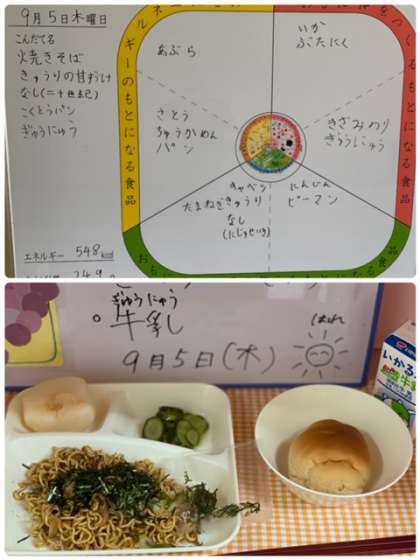 9月5日木曜日
こんだて名
焼きそば
きゅうりの甘酢づけ
なし(二十世紀)
こくとうパン
ぎゅうにゅう
エネルギー 548 kcal
ギーのもとになる食品
あぶら
さとう
ちゅうかめん
パン
いか
ぶたにく
きざみのり
ぎゅうにゅう
つくるもとになる食品
キャベツ
たまねぎ きゅうり
なし
(にじゅせいき)
にんじん
ピーマン
ぎゅうにゅう
牛乳
9月5日(木)
はれ
いかる
牛乳